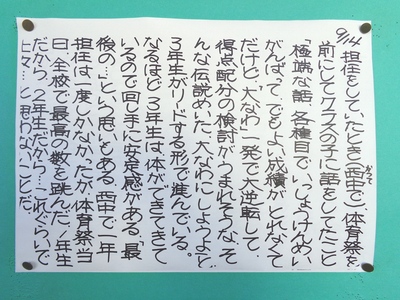 9/14 担任をしていたとき(西中で)体育祭を
前にしてクラスの子に話をしたこと
かつて
「極端な話、各種目でいっしょうけんめい
がんばって、でもよい成績がとれなくて
だけど、"大なわ"一発で大逆転して、
得点配分の検討がうまれそうな、そ
んな伝説めいた、大なわにしようよ」と
3年生がリードする形で進んでいる。
なるほど3年生は体ができてきて
いるので回し手に安定感がある。「最
後の…」という思いもある。西中で一年
担任は一度しかなかったが体育祭当
日、全校で最高の数を跳んだ。1年生
だから、2年生だから…これぐらいで
上々…と思わないことだ。